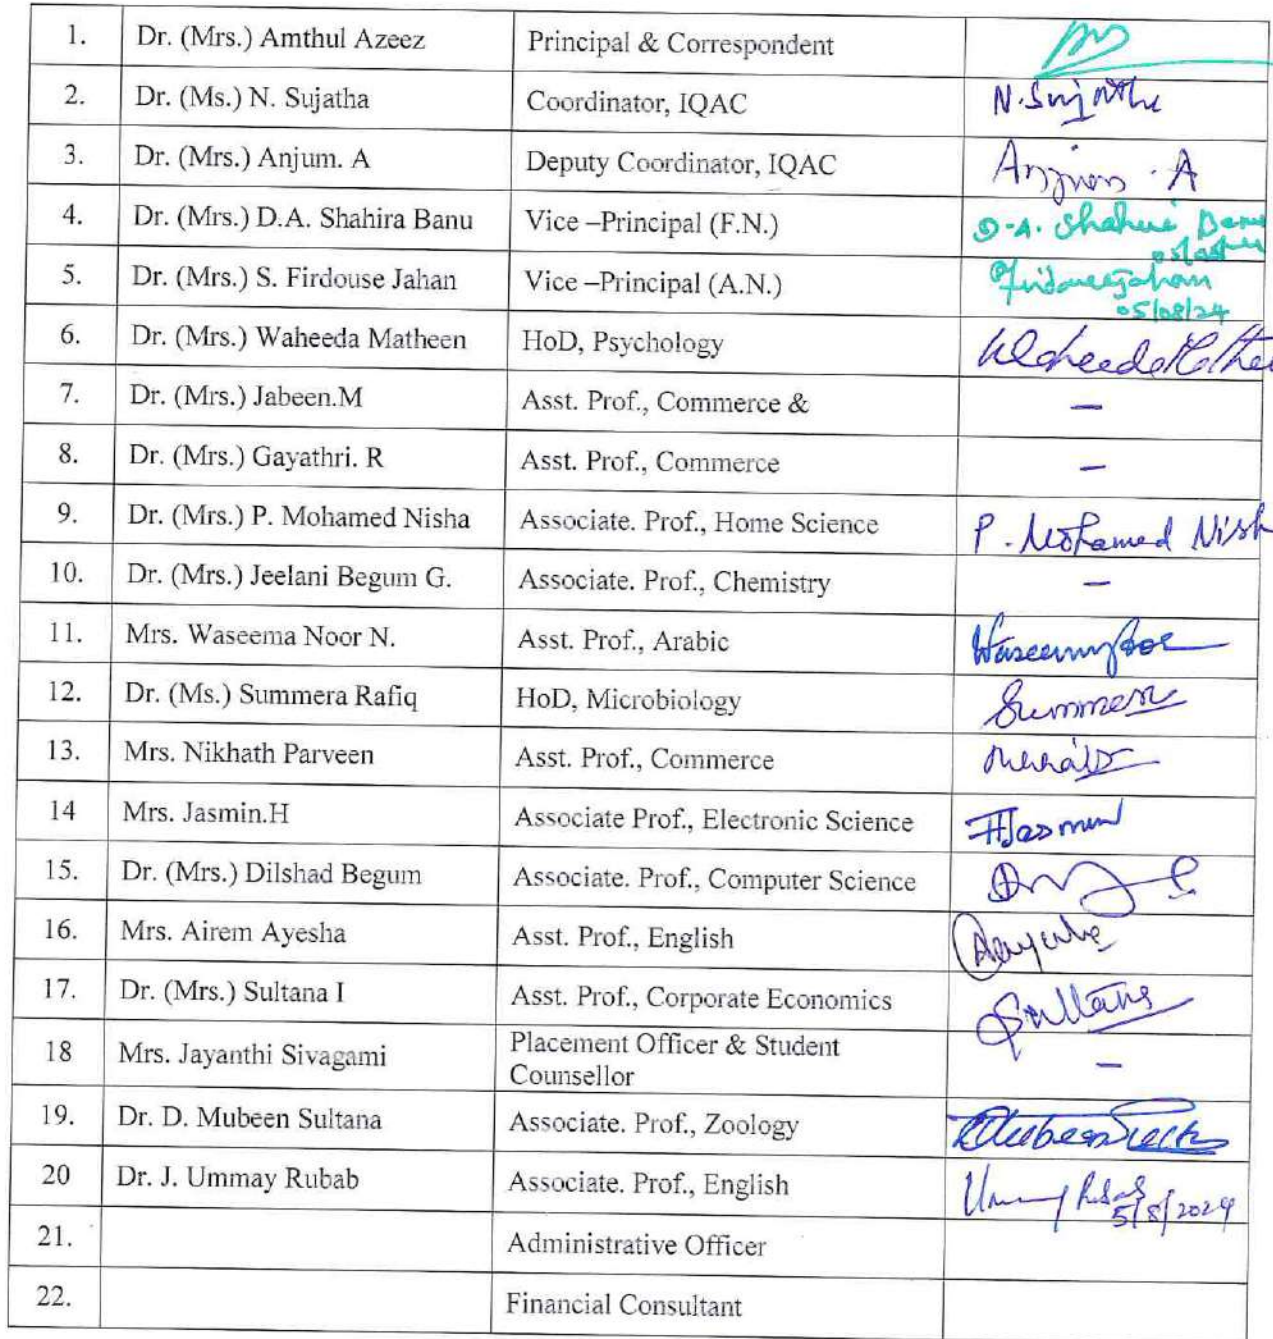 1. Dr. (Mrs.) Amthul Azeez Principal & Correspondent
2. Dr. (Ms.) N. Sujatha Coordinator, IQAC N. Sujatha
3. Dr. (Mrs.) Anjum. A Deputy Coordinator, IQAC Anjum. A
4. Dr. (Mrs.) D.A. Shahira Banu Vice –Principal (F.N.) D.A. Shahira Banu
5. Dr. (Mrs.) S. Firdouse Jahan Vice –Principal (A.N.) Firdouse Jahan
05/08/24
6. Dr. (Mrs.) Waheeda Matheen HoD, Psychology Waheeda Mathe
7. Dr. (Mrs.) Jabeen.M Asst. Prof., Commerce & –
8. Dr. (Mrs.) Gayathri. R Asst. Prof., Commerce –
9. Dr. (Mrs.) P. Mohamed Nisha Associate. Prof., Home Science P. Mohamed Nish
10. Dr. (Mrs.) Jeelani Begum G. Associate. Prof., Chemistry –
11. Mrs. Waseema Noor N. Asst. Prof., Arabic
12. Dr. (Ms.) Summera Rafiq HoD, Microbiology Summera
13. Mrs. Nikhath Parveen Asst. Prof., Commerce
14 Mrs. Jasmin.H Associate Prof., Electronic Science H Jasmin
15. Dr. (Mrs.) Dilshad Begum Associate. Prof., Computer Science
16. Mrs. Airem Ayesha Asst. Prof., English
17. Dr. (Mrs.) Sultana I Asst. Prof., Corporate Economics Sultana
18 Mrs. Jayanthi Sivagami Placement Officer & Student –
Counsellor
19. Dr. D. Mubeen Sultana Associate. Prof., Zoology
20 Dr. J. Ummay Rubab Associate. Prof., English
5/8/2024
21. Administrative Officer
22. Financial Consultant